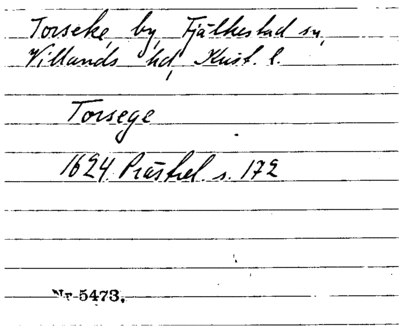 Torseke, by, Fjälkestad sn,
Villands hd, Krist. l.
Torsege
1624 Prästrel s. 172
Nr 5473.